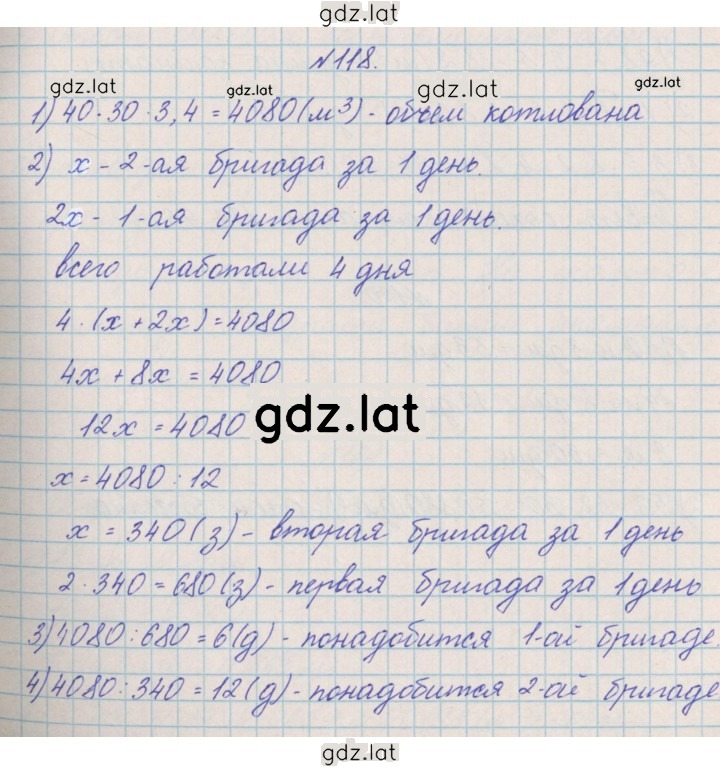 gdz.lat
№118.
gdz.lat gdz.lat gdz.lat gdz.lat
1) 40·30·3,4 = 4080(м³) - объем котлована
2) х - 2-ая бригада за 1 день.
2х - 1-ая бригада за 1 день.
всего работали 4 дня
4·(х + 2х) = 4080
4х + 8х = 4080
12х = 4080
gdz.lat
х = 4080 : 12
х = 340(з) - вторая бригада за 1 день
2·340 = 680(з) - первая бригада за 1 день
3) 4080 : 680 = 6(д) - понадобится 1-ой бригаде.
4) 4080 : 340 = 12(д) - понадобится 2-ой бригаде
gdz.lat